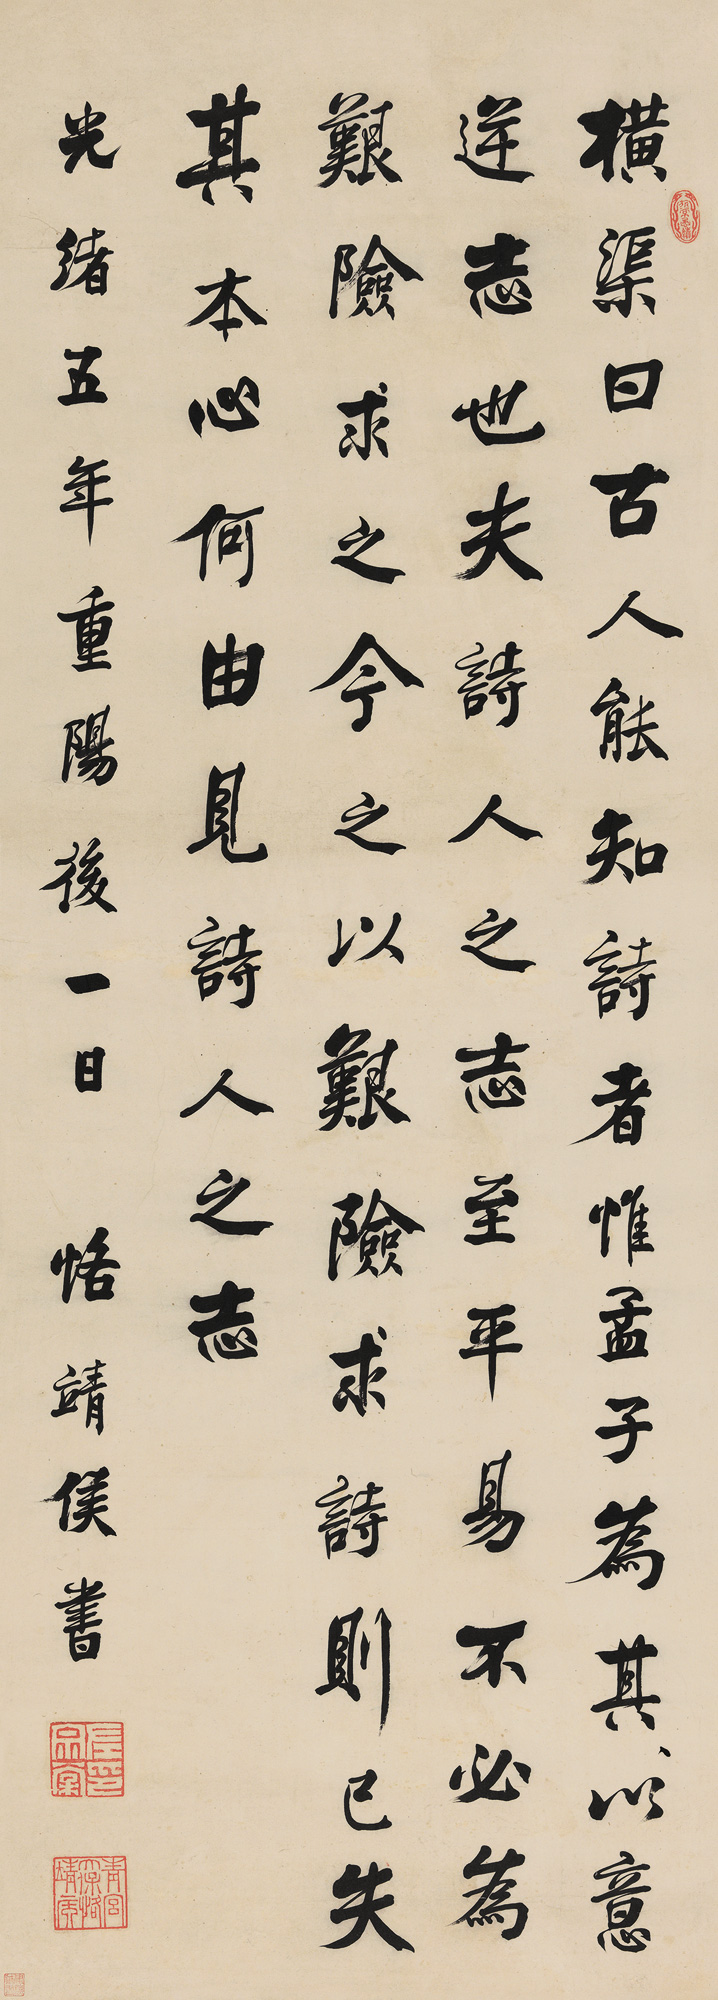 橫渠曰古人能知詩者惟孟子為其以意
逆志也夫詩人之志至平易不必為
艱險求之今之以艱險求詩則已失
其本心何由見詩人之志
光緒五年重陽後一日 恪靖侯書
左宗棠印
青宮太保恪靖侯